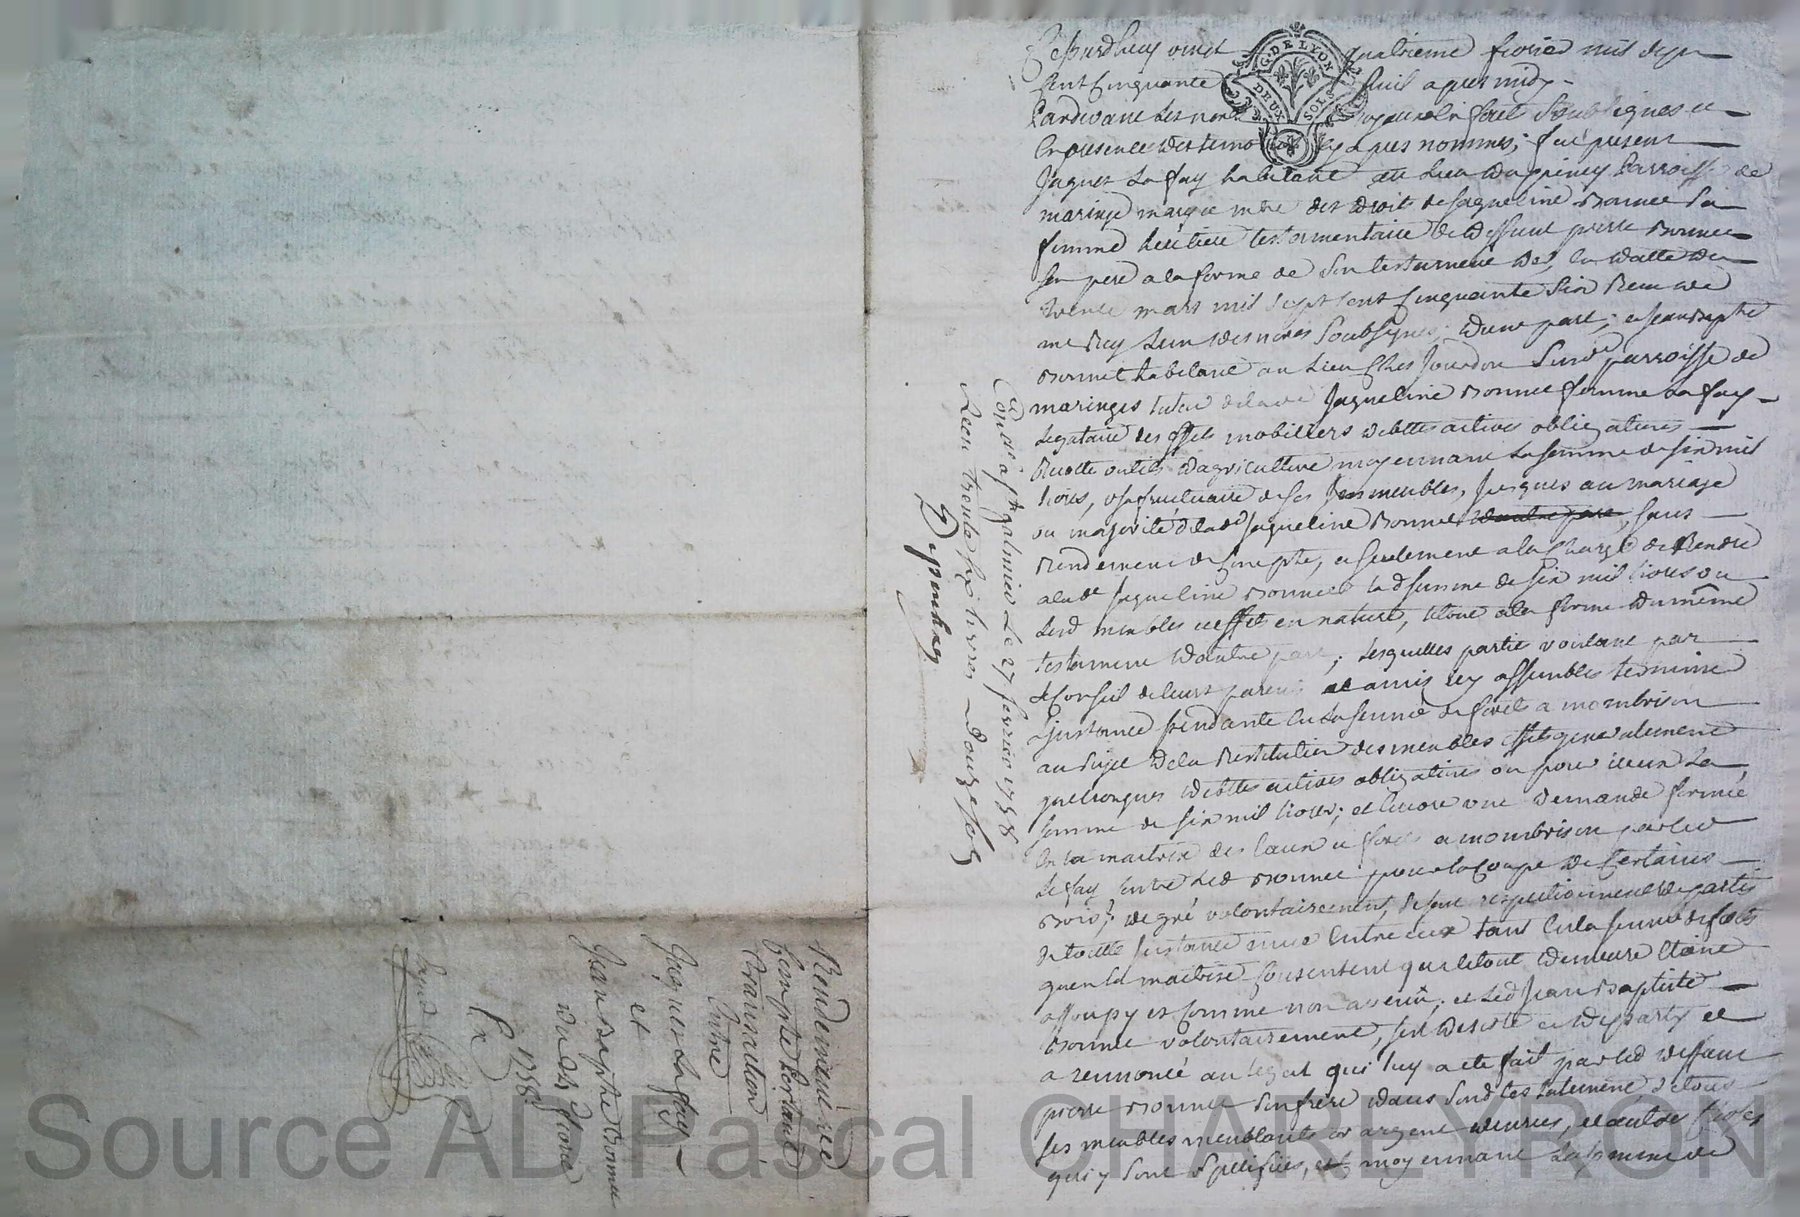 Cejourdhuy vingt quatrieme fevrier mil sept
Cent Cinquante huit apres midy
Pardevant Les no. Royaux en fait Soubsignes et
En presence des temo. cy apres nommes; fut present
Jaques Lafay habitant au Lieu du piney Parroisse de
maringe mary et mtre des droit de Jaqueline Bonnet Sa
femme heritiere testamentaire de deffunt pierre Bonnet
Son pere a la forme de Son testament de la datte du
trente mars mil sept cent Cinquante Six Receu
me Rey Lun des nores Soubsignes; d'une part; et Jean Baptiste
Bonnet habitant au Lieu Ches Jourdon Susde parroisse de
maringes tuteur de lade Jaqueline Bonnet femme Lafay
Legataire des effets mobilliers debttes actives obligatoires
outils dagriculture moyennant La somme de six mil
livres, usufruituaire de ses Jmmeubles, Jusques au mariage
ou majorité de lad Jaqueline Bonnet d'autre part, sans
Rendement de Compte, et seulement a la Charge de Rendre
a lade Jaqueline Bonnet lad somme de six mil livres ou
Lesd meubles et effet en nature, le tout a la forme du même
testament d'autre part; Lesquelles partie voulant par
Le Conseil de leurs parens et amis icy assembles terminer
L'justance pendante en la senne de forest a mombrison
au sujet de la Restitution des meubles effets generalement
quelconques debttes actives obligatoires ou pour iceux La
somme de six mil livres; et Encore une demande formée
En la maitrise des Eaux et forets a mombrison par led
Lafay contre Led Bonnet pour la Coupe de Certains
Bois; de gré volontairement, se sont respectivement departis
de toutte Justance mue Entre eux tant En la senne de forest
qu'en la maitrise Consentent que le tout demeure Eteint
assoupy et Comme non avenu; et Led Jean Baptiste
Bonnet volontairement, s'est desisté et departy et
a renoncé au legat qui luy a eté fait par led deffunt
pierre Bonnet son frere dans sond testament de tous
ses meubles meublants or argent denrées, et autres choses
qui y sont spécifiées, et moyennant La somme de
Controlé a St galmier Le 27 fevrier 1758
Receu trente six livres douze sols
Depunhey
Rendement de
Compte Portant
transaction
Entre
Jaques Lafay
et
Jean Baptiste Bonnet
du 24 fevrier
1758